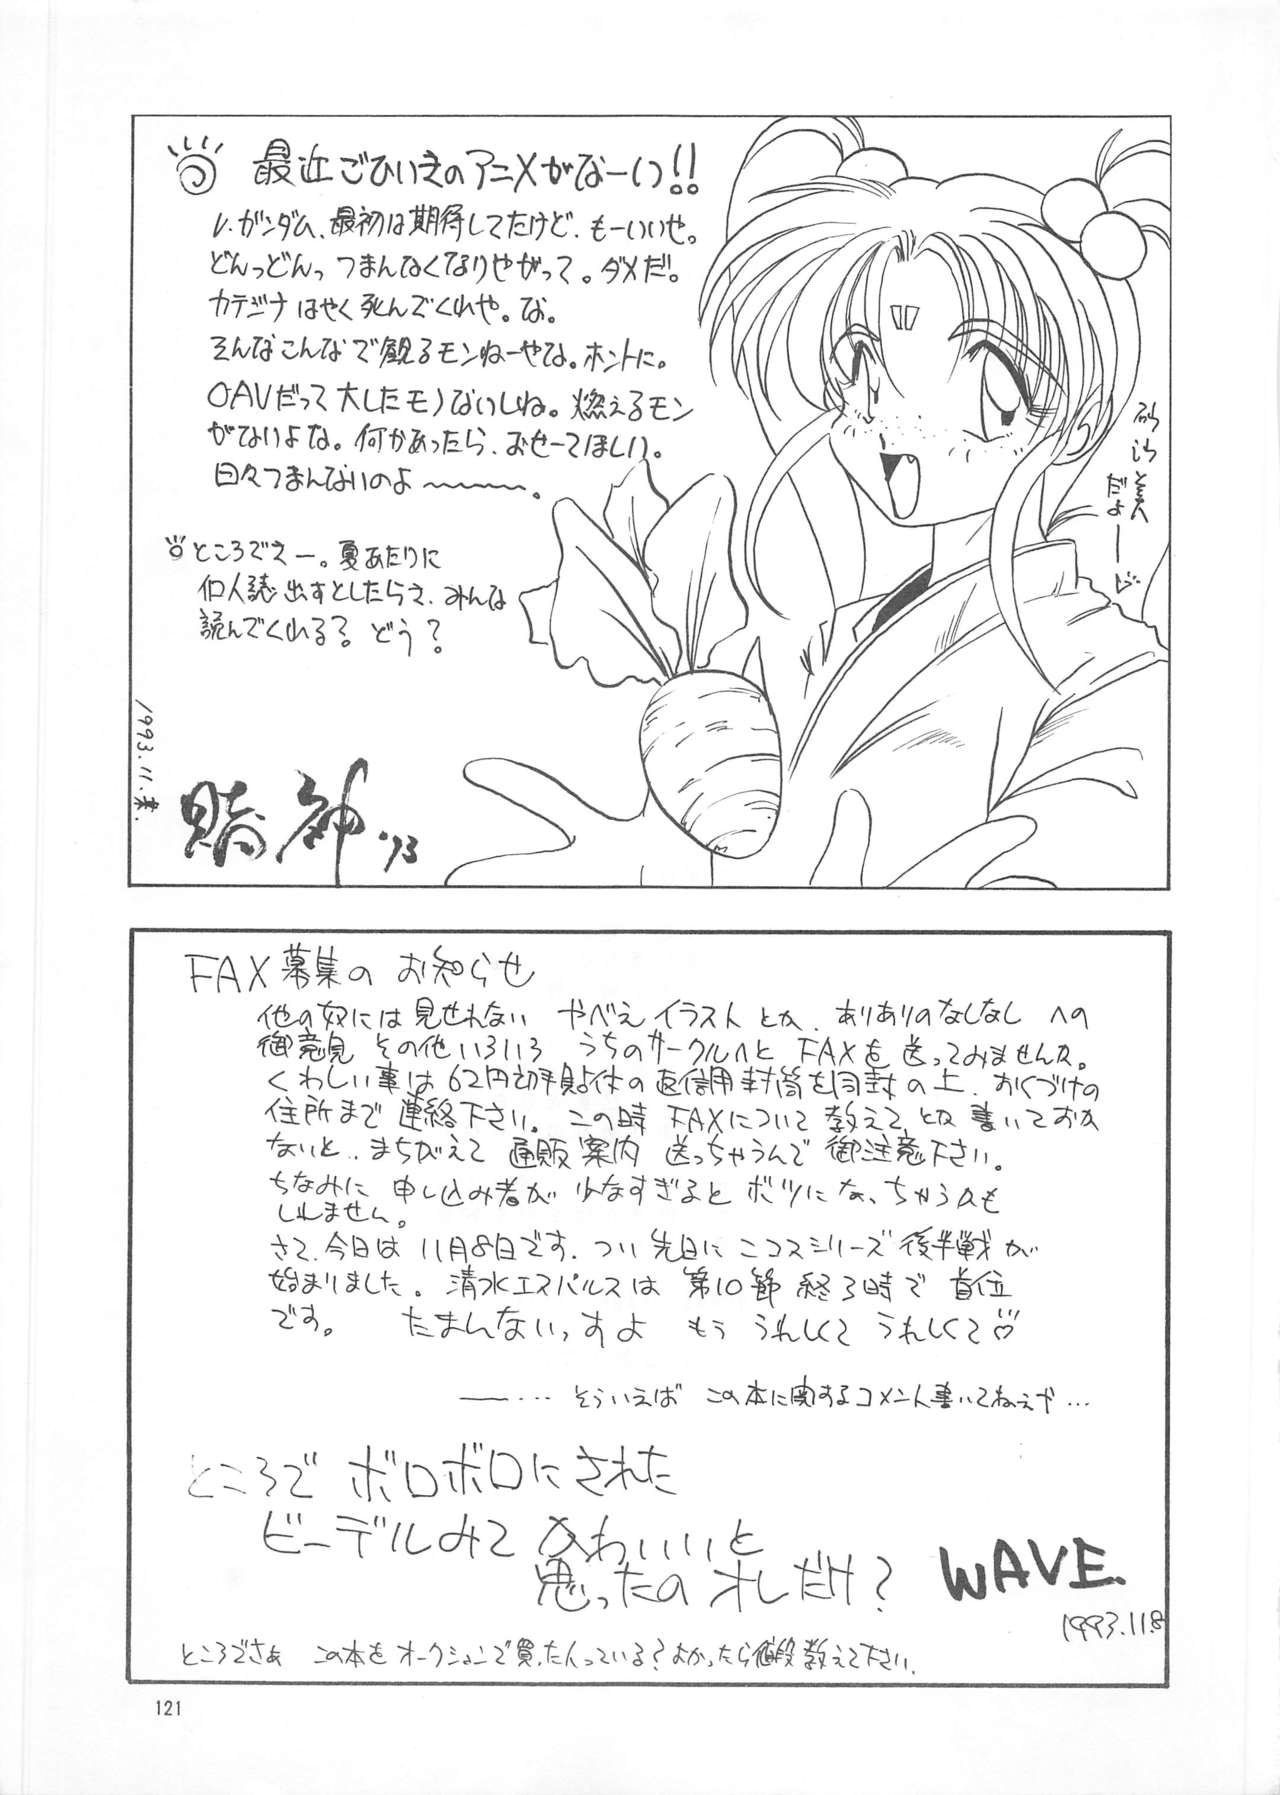 最近ごひいきのアニメがなーいっ!!
V.ガンダム、最初は期待してたけど、もーいいや。
どんっどんっ つまんなくなりやがって。ダメだ。
カテジナ はやく死んでくれや。な。
そんなこんなで観るモンねーやな。ホントに。
OAVだって大したモノないしね。燃えるモン
がないよな。何かあったら、おせーてほしい。
日々つまんないのよ〜〜〜。
砂沙美
だよーーど
ところでえー。夏あたりに
個人誌出すとしたらさ、みんな
読んでくれる? どう?
1993.11.末.
賭神 '93
FAX募集の お知らせ
他の奴には見せれない やべえイラストとか、ありありのなしなし への
御意見 その他いろいろ うちのサークルへと FAXを送ってみませんか。
くわしい事は62円切手貼付の返信用封筒を同封の上、おくづけの
住所まで 連絡下さい。この時 FAXについて教えて、とか書いておか
ないと、まちがえて 通販案内 送っちゃうんで 御注意下さい。
ちなみに 申し込み者が 少なすぎると ボツになっちゃうかも
しれません。
さて、今日は 11月8日です。つい先日に ニコスシリーズ後半戦が
始まりました。清水エスパルスは 第10節 終了時で 首位
です。 たまんないっすよ もう うれしくて うれしくて♡
——… そういえば この本に関するコメント書いてねえや…
ところで ボロボロにされた
ビーデルみて かわいいと
思ったの オレだけ?
WAVE.
1993.11.8
ところでさぁ この本をオークションで買った人っている? よかったら値段教えて下さい。
121